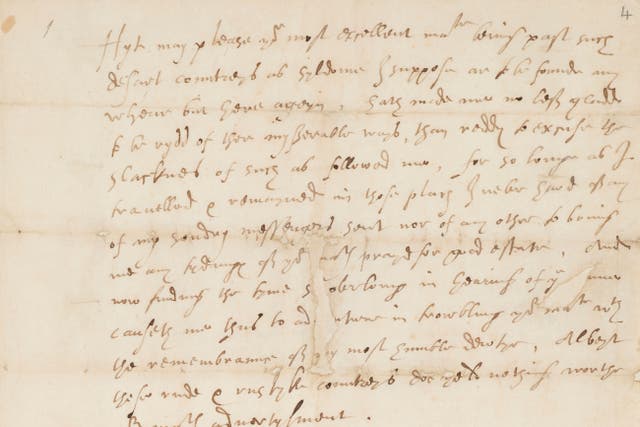 4
Hyt may please yor most excellent matie beinge past such
desart countreys as syldome I suppose are to be founde any
wheare but heere ageyn, hath made me no less gladd
to be rydd of ther mysserable ways, than reddy to excuse the
slacknes of such as followed me, for so longe as I
travelled & remayned in those places I never hard of any
of my sondry messengers sent nor of any other to bringe
me any tydings of yor prayed for good estate, And
now findinge the tyme so overlonge in hearing of yor same
causeth me thus to in trowbling yor matie with
the remembrance of my most humble dewtye, Albeyt
these rude & ruslyke countreys doe yeld nothinge worthe
advertysment.